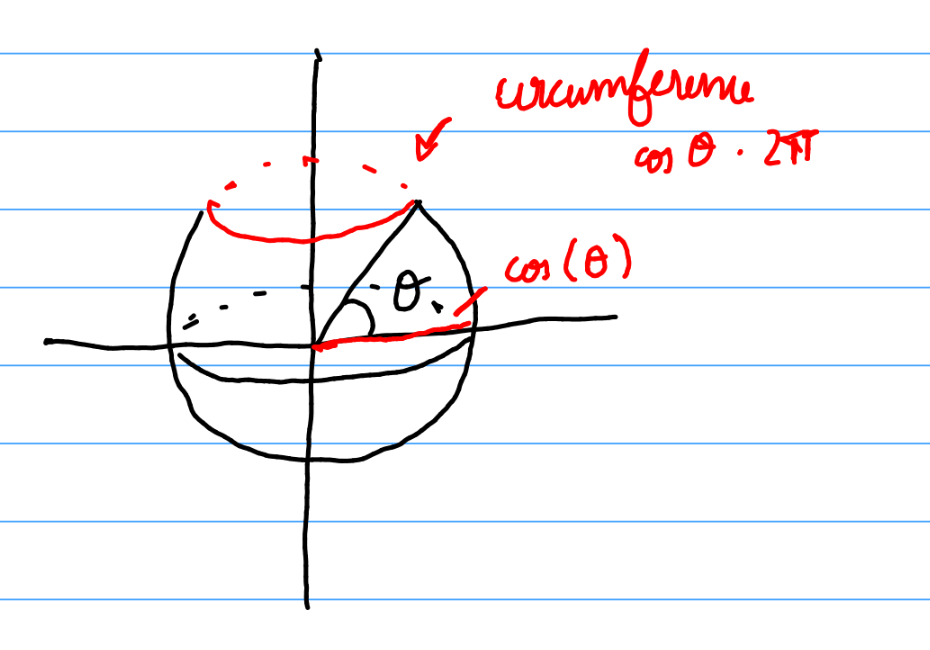 circumference
cos θ · 2π
cos(θ)
θ